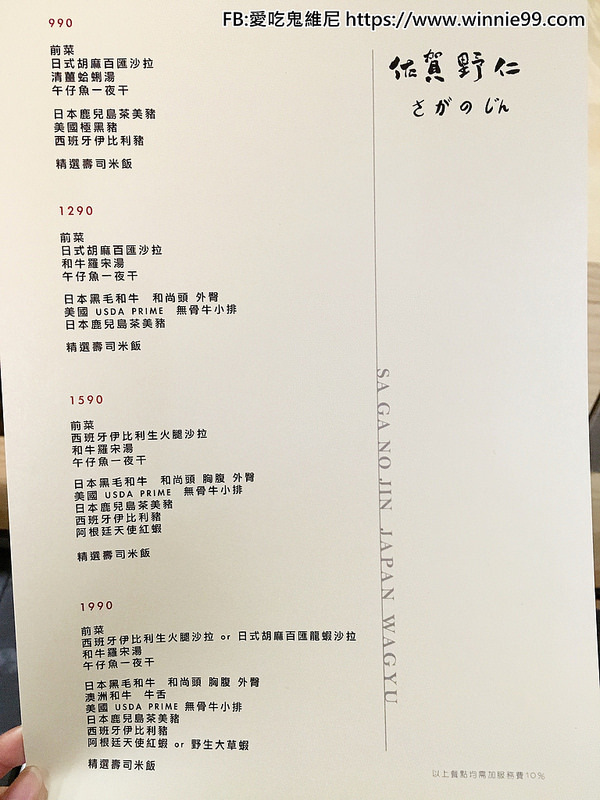 FB:愛吃鬼維尼 https://www.winnie99.com
990
前菜
日式胡麻百匯沙拉
清薑蛤蜊湯
午仔魚一夜干
日本鹿兒島茶美豬
美國極黑豬
西班牙伊比利豬
精選壽司米飯
1290
前菜
日式胡麻百匯沙拉
和牛羅宋湯
午仔魚一夜干
日本黑毛和牛 和尚頭 外臀
美國 USDA PRIME 無骨牛小排
日本鹿兒島茶美豬
精選壽司米飯
1590
前菜
西班牙伊比利生火腿沙拉
和牛羅宋湯
午仔魚一夜干
日本黑毛和牛 和尚頭 胸腹 外臀
美國 USDA PRIME 無骨牛小排
日本鹿兒島茶美豬
西班牙伊比利豬
阿根廷天使紅蝦
精選壽司米飯
1990
前菜
西班牙伊比利生火腿沙拉 or 日式胡麻百匯龍蝦沙拉
和牛羅宋湯
午仔魚一夜干
日本黑毛和牛 和尚頭 胸腹 外臀
澳洲和牛 牛舌
美國 USDA PRIME 無骨牛小排
日本鹿兒島茶美豬
西班牙伊比利豬
阿根廷天使紅蝦 or 野生大草蝦
精選壽司米飯
佐賀野仁
さがのじん
SA GA NO JIN JAPAN WAGYU
以上餐點均需加服務費10%